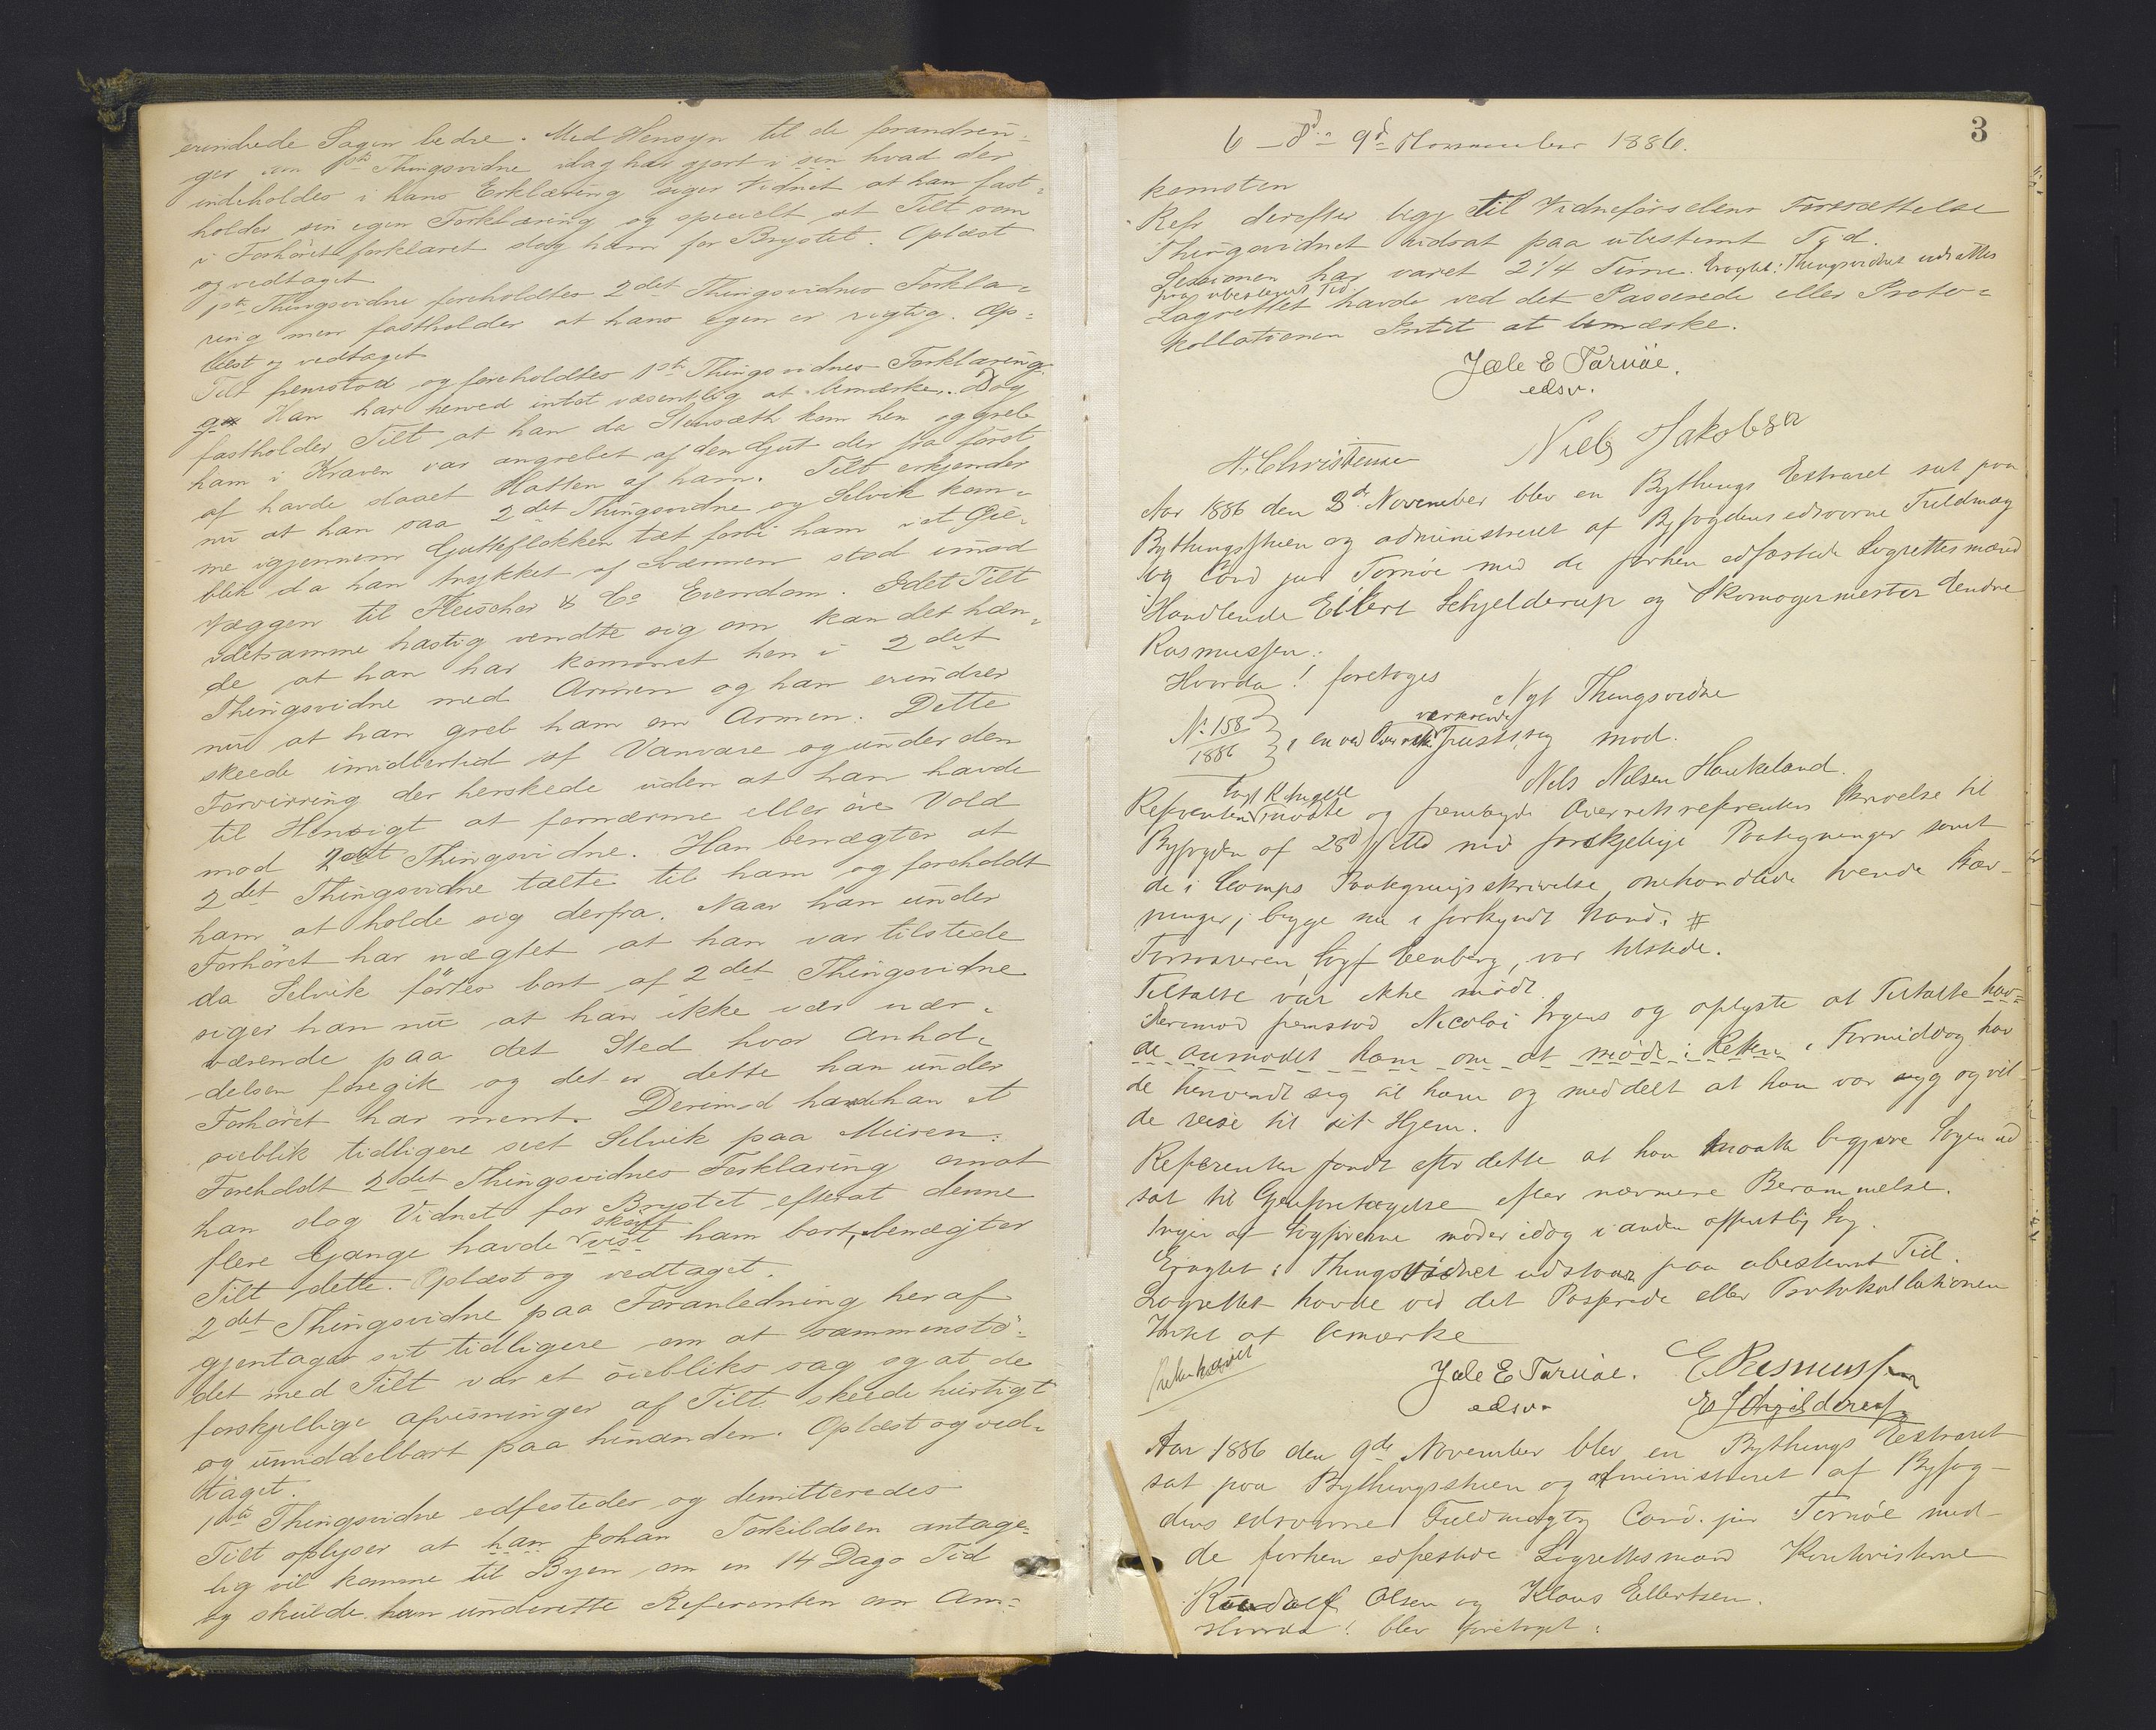 erindrede Sagen bedre. Med Hensyn til de forandrin-
ger som 1ste Thingsvidne idag har gjort i sin hvad der
indeholdes i hans Erklæring siger Vidnet at han fast-
holder sin egen Forklaring og specielt at Tilt som
i Forhöret forklaret slog ham for Brystet. Oplæst
og vedtaget
1ste Thingsvidne foreholdtes 2det Thingsvidnes Forkla-
ring men fastholder at hans egen er rigtig. Op-
læst og vedtaget
Tilt fremstod og foreholdtes 1ste Thingsvidnes Forklaring
Han har herved intet væsentlig at bemærke. Dog
fastholder Tilt at han da Stensæth kom hen og greb
ham i Kraven var angrebet af den Gut der fra först
af havde slaaet Hatten af ham. Tilt erkjender
nu at han saa 2det Thingsvidne og Selvik kom-
me igjennem Gutteflokken tæt forbi ham i et Öie-
blik da han trykket af Sværmen stod imod
Væggen til Fleischer & Co Eiendom. Idet Tilt
i detsamme hastig vendte sig om kan det hæn-
de at han har kommet hen i 2det
Thingsvidne med Armen og han erindrer
nu at han greb ham om Armen. Dette
skeede imidlertid af Vanvare og under den
Forvirring der herskede uden at han havde
til Hensigt at fornærme eller öve Vold
mod 2det Thingsvidne. Han benægter at
2det Thingsvidne talte til ham og foreholdt
ham at holde sig derfra. Naar han under
Forhöret har nægtet at han var tilstede
da Selvik förtes bort af 2det Thingsvidne
siger han nu at han ikke var nær-
værende paa det Sted hvor Anhol-
delsen foregik og det er dette han under
Forhöret har ment. Derimod havde han et
öieblik tidligere seet Selvik paa Muren.
Foreholdt 2det Thingsvidnes Forklaring om at
han slog Vidnet for Brystet efterat denne
skjöft
flere Gange havde vist ham bort, benægter
Tilt dette. Oplæst og vedtaget.
2det Thingsvidne paa Foranledning heraf
gjentager sit tidligere om at sammenstö-
det med Tilt var et öiebliks sag og at de
forskjellige afvisninger af Tilt skeede hurtigt
og umiddelbart paa hinanden. Oplæst og ved-
taget.
1ste Thingsvidne edfestedes og demitteredes
Tilt oplyser at han Johan Torkildsen antage-
lig vil komme til Byen om en 14 Dags Tid
og skulde han underette Referenten om Am-
3
6 - 8d - 9d November 1886.
komsten
Refr derefter begj til Vidneförselens Forsættelse
Thingsvidnet udsat paa ubestemt Tid.
Sessionen har varet 2 1/4 Time. Eragtet: Thingsvidnet udsættes
paa ubestemt Tid.
Lagrettet havde ved det Passerede eller Proto-
kollationen Intet at bemærke.
Jæle E Tornöe.
edsv.
H. Christensen Niels Jakobsen
Aar 1886 den 8de November blev en Bythings Extraret sat paa
Bythingsstuen og administreret af Byfogdens edsvorne Fuldmæg
tig Cand jur Tornöe med de forhen edfæstede Lagrettesmænd
Handlende Eilert Schjelderup og Skomagermester Endre
Rasmussen.
Hvorda! foretoges
Nyt Thingsvidne
No 158
1886
værkende
i en ved Overrett Justissag mod.
Nils Nilsen Haukeland.
Referenten mödte og fremlagde Overretsreferentens Skrivelse til
Byfogden af 28d f Md med forskjellige Paategninger samt
de i Paategningsskrivelse omhandlede tvende Stæv-
ninger, begge nu i forkyndt Stand. #
Forsvareren, Sagf Lenberg, var tilstede.
Tiltalte var ikke mödt.
Derimod fremstod Nicolai Irgens og oplyste at Tiltalte hav-
de anmodet ham om at möde i Retten i Formiddag hav
de henvendt sig til ham og meddelt at han var syg og vil
de reise til sit Hjem.
Referenten fandt efter dette at han maatte begjære Sagen ud
sat til Gjenforetagelse efter nærmere Berammelse.
Ingen af Sagförerne möder idag i anden offentlig Sag.
Eragtet: Thingsvidnet udstaar paa ubestemt Tid.
Lagrettet havde ved det Passerede eller Protokollationen
Intet at bemærke
Retten hævet
Jæle E Tornöe. E Rasmussen
edsv. E Schjelderup
Aar 1886 den 9de November blev en Bythings Extraret
sat paa Bythingsstuen og administreret af Byfog-
dens edsvorne Fuldmægtig Cand. jur Tornöe med
de forhen edfestede Lagrettesmænd Kontoristerne
Raadalf Olsen og Klaus Ellertsen.
Hvorda! blev foretaget: